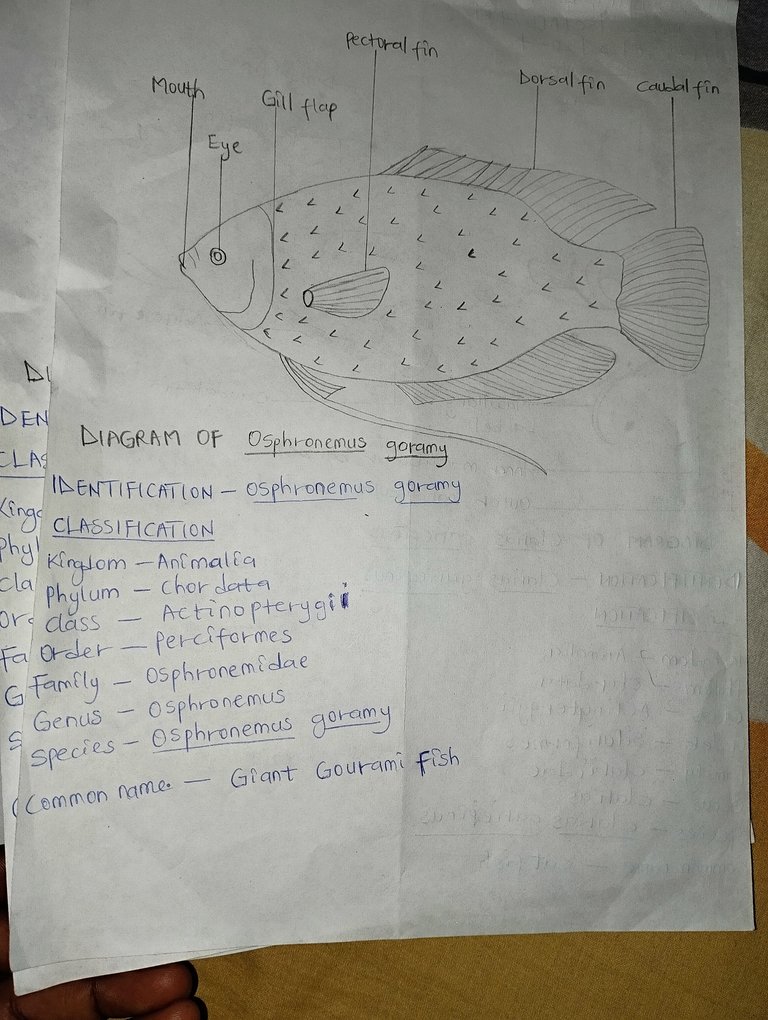 Pectoral fin
Mouth
Gill flap
Dorsal fin
Caudal fin
Eye
DIAGRAM OF Osphronemus goramy
IDENTIFICATION – Osphronemus goramy
CLASSIFICATION
Kingdom – Animalia
Phylum – Chordata
Class – Actinopterygii
Order – Perciformes
Family – Osphronemidae
Genus – Osphronemus
Species – Osphronemus goramy
Common name. – Giant Gourami fish
DI
DEN
CLAS
King
Phyl
Cla
Or
Fa
G
S